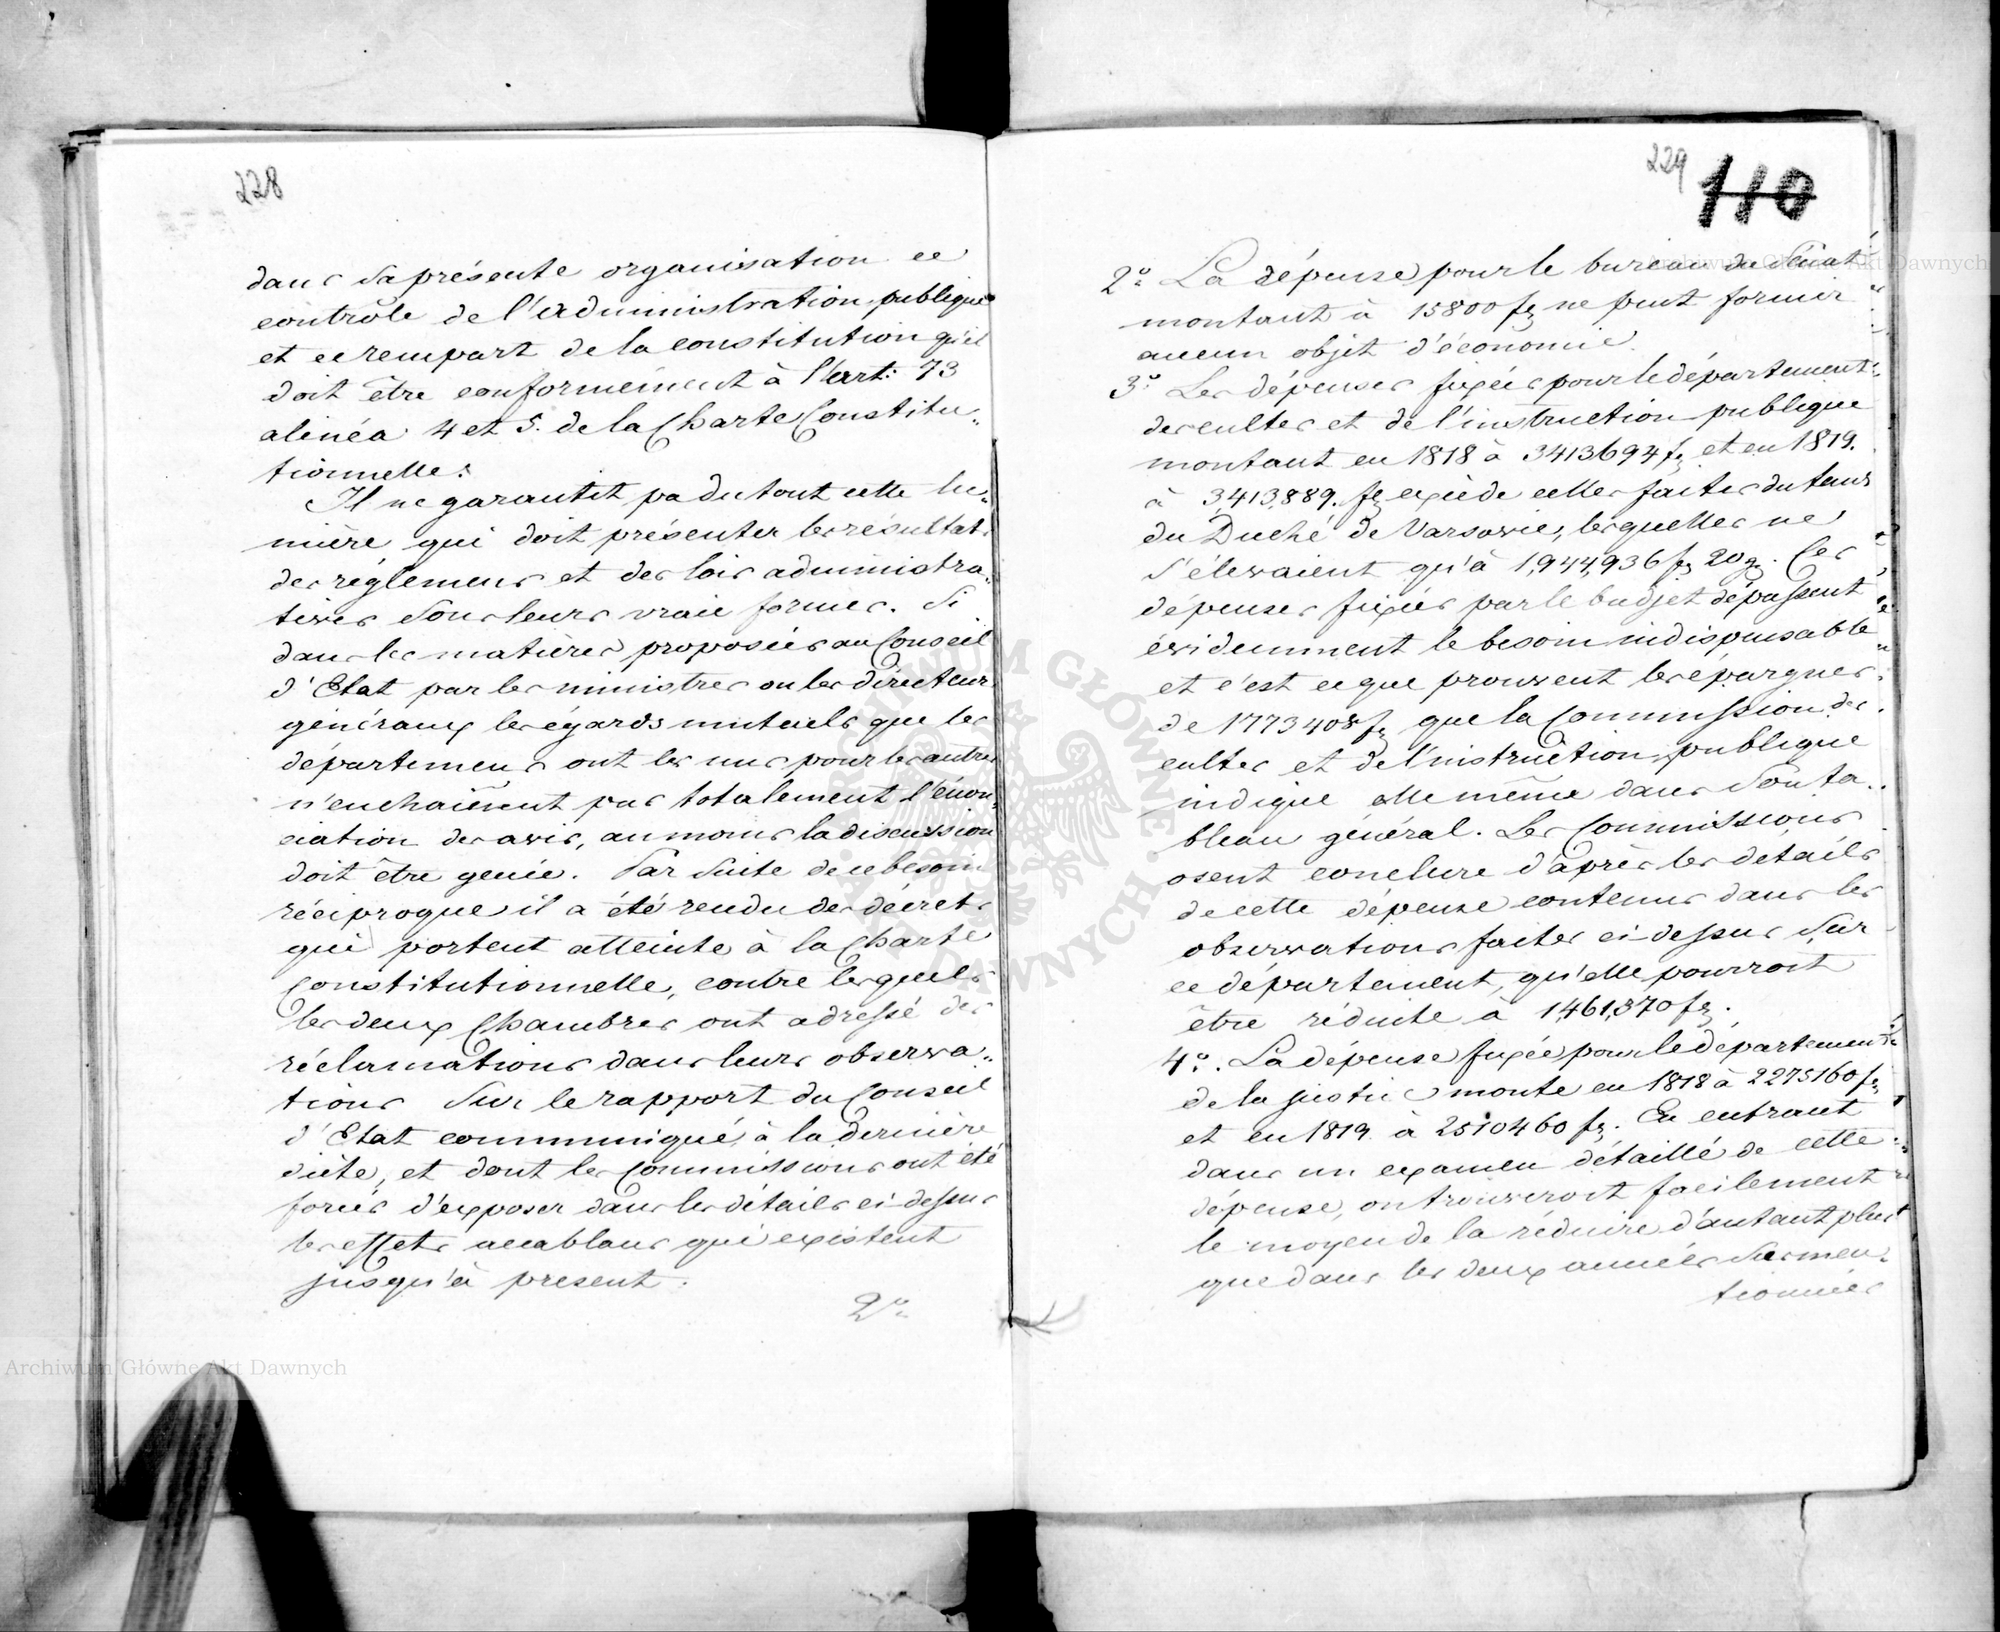 228
dans sa présente organisation ce
contrôle de l'administration publique
et ce rempart de la constitution qu'il
doit être conformément à l'art: 73
alinéa 4 et 5. de la Charte Constitu„
tionnelle.
Il ne garantit pas du tout cette lu„
mière qui doit présenter les résultats
des réglemens et des lois administra„
tives sous leurs vraie formes. Si
dans les matières proposées au Conseil
d'Etat par les ministres ou les directeurs
généraux les égards mutuels que les
départemens ont les uns pour les autres
n'enchainent pas totalement l'énon„
ciation des avis, au moins la discussion
doit être genée. Par suite de ce besoin
réciproque il a été rendu des décrets
qui portent atteinte à la Charte
Constitutionnelle, contre lesquels
les deux Chambres ont adressé des
réclamations dans leurs observa„
tions sur le rapport du Conseil
d'Etat communiqué à la dernière
diète, et dont les Commissions ont été
forcés d'exposer dans les détails ci-dessus
les effets accablans qui existent
jusqu'à present.
2º
229
110
2º. La dépense pour le bureau du Sénat
montant à 15800 fl ne peut former
aucun objet d'économie.
3º. Les dépenses fixées pour le département
des cultes et de l'instruction publique
montant en 1818 à 3413694 fl et en 1819.
à 3,413,889. fl excède celles faites du tems
du Duché de Varsovie, lesquelles ne
s'élevaient qu'à 1,944,936 fl 20 g. Ces
dépenses fixées par le budjet dépassent
évidemment le besoin indispensable
et c'est ce que prouvent les épargnes
de 1773408 fl que la Commission des
cultes et de l'instruction publique
indique elle même dans son ta„
bleau général. Les Commissions
osent conclure d'après les détails
de cette dépense contenus dans les
observations faites ci-dessus sur
ce département, qu'elle pourroit
être réduite à 1,461,370 fl.
4º. La dépense fixée pour le département
de la justice monte en 1818 à 2275160 fl
et en 1819 à 2510460 fl. En entrant
dans un examen détaillé de cette
dépense, on trouveroit facilement
le moyen de la réduire d'autant plus
que dans les deux années susmen„
tionnées
Archiwum Główne Akt Dawnych
ARCHIWUM GŁÓWNE AKT DAWNYCH
Archiwum Główne Akt Dawnych